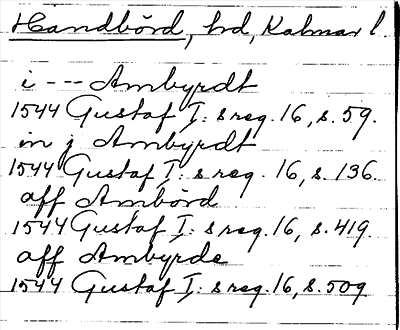 Handbörd, hd, Kalmar l.
i --- Ambyrdt
1544 Gustaf I: s reg. 16, s. 59.
in j Ambyrdt
1544 Gustaf I: s reg. 16, s. 136.
aff Ambörd
1544 Gustaf I: s reg. 16, s. 419.
aff Ambyrde
1544 Gustaf I: s reg. 16, s. 509